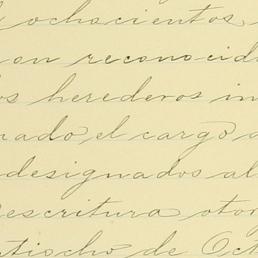 l ochocientos
on reconocid
os herederos in
nado el cargo a
designados al
escritura otor
tiocho de Oct